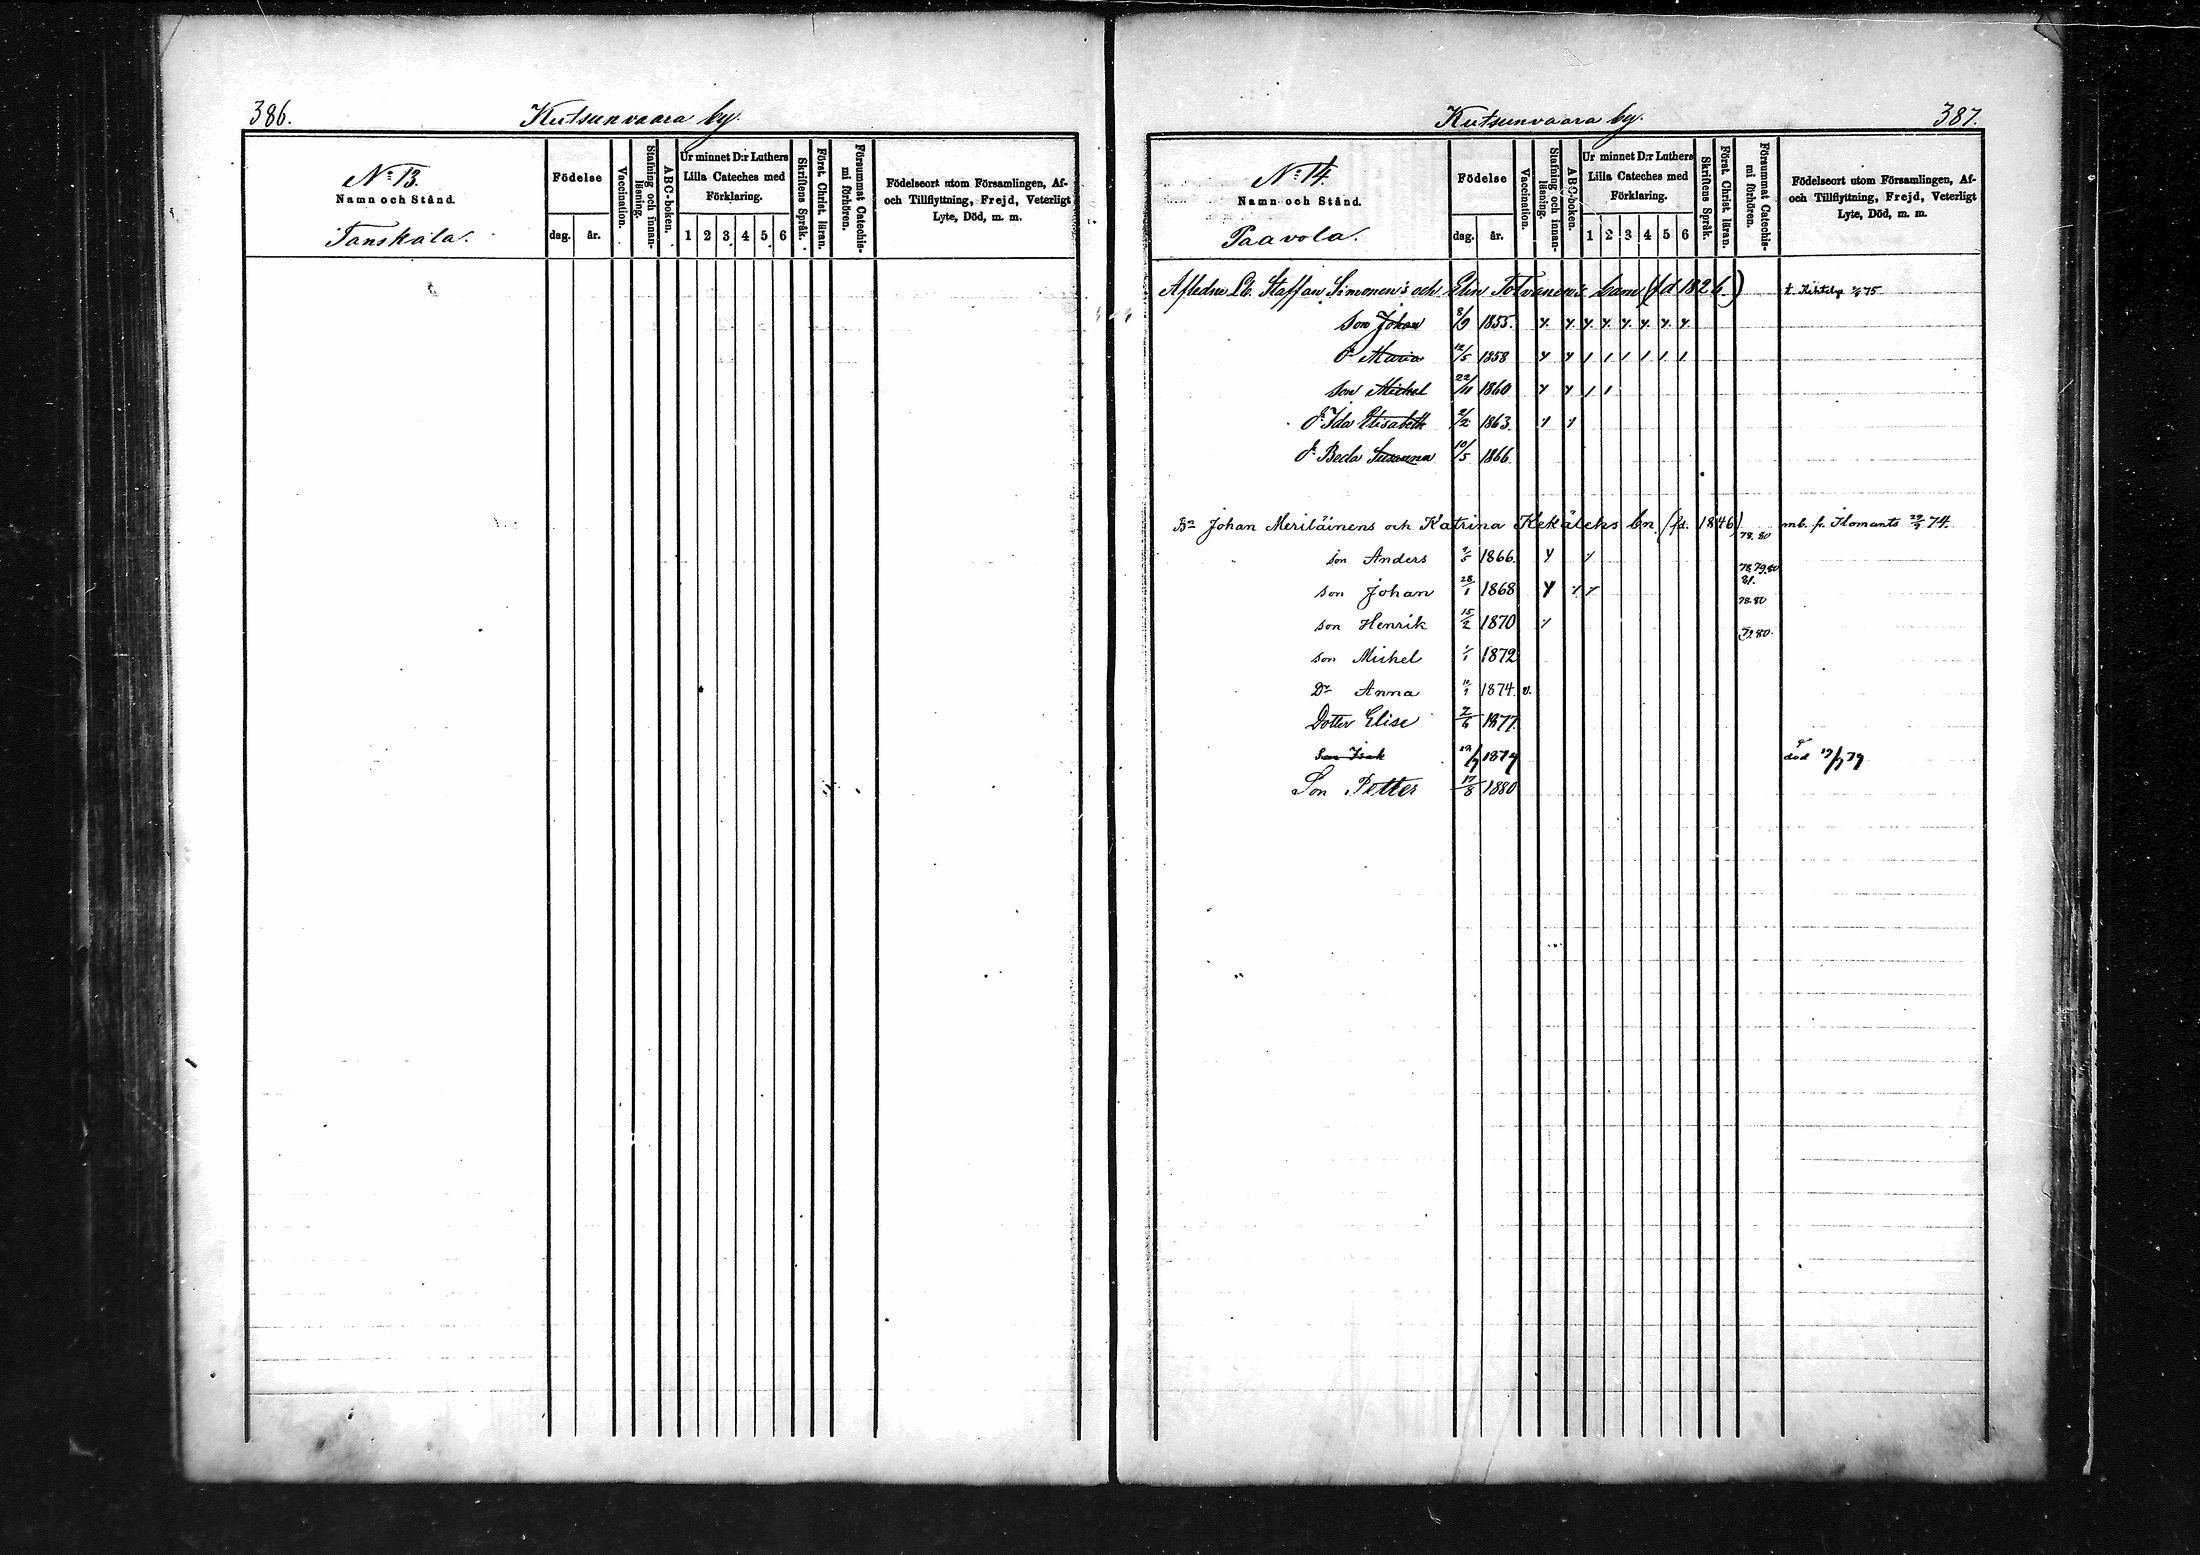 386.
Kutsunvaara by.
No 13.
Namn och Stånd.
Tanskala.
Födelse
dag. år.
Vaccination.
Stafning och innan-
läsning.
ABC-boken.
Ur minnet D:r Luthers
Lilla Cateches med
Förklaring.
1 2 3 4 5 6
Skriftens Språk.
Förat. Christ. läran.
Försummat Catechis-
mi förhören.
Födelseort utom Församlingen, Af-
och Tillflyttning, Frejd, Veterligt
Lyte, Död, m. m.
Kutsunvaara by.
387.
No 14.
Namn och Stånd.
Paavola.
Födelse
dag. år.
Vaccination.
Stafning och innan-
läsning.
ABC-boken.
Ur minnet D:r Luthers
Lilla Cateches med
Förklaring.
1 2 3 4 5 6
Skriftens Språk.
Förat. Christ. läran.
Försummat Catechis-
mi förhören.
Födelseort utom Församlingen, Af-
och Tillflyttning, Frejd, Veterligt
Lyte, Död, m. m.
Afledne Lb. Staffan Simonen's och Elin Tolvanen's barn (fd 1826) 75
Son Johan 8/9 1855.
dr Maria 12/5 1858
son Michel 22/11 1860
dr Ida Elisabeth 2/2 1863.
dr Beda Susanna 10/5 1866
Bn Johan Meriläinens och Katrina Kekäleks bn (fd. 1846) mb. fr. Ilomants 29/9 74.
78. 80
son Anders 9/5 1866.
78, 79, 80
81.
son Johan 28/1 1868
78. 80
son Henrik 15/2 1870
79. 80.
son Michel 1/1 1872
Dr Anna 10/1 1874. v.
Dotter Elise 7/6 1877.
Son Isak 1879 död 79
Son Petter 17/8 1880